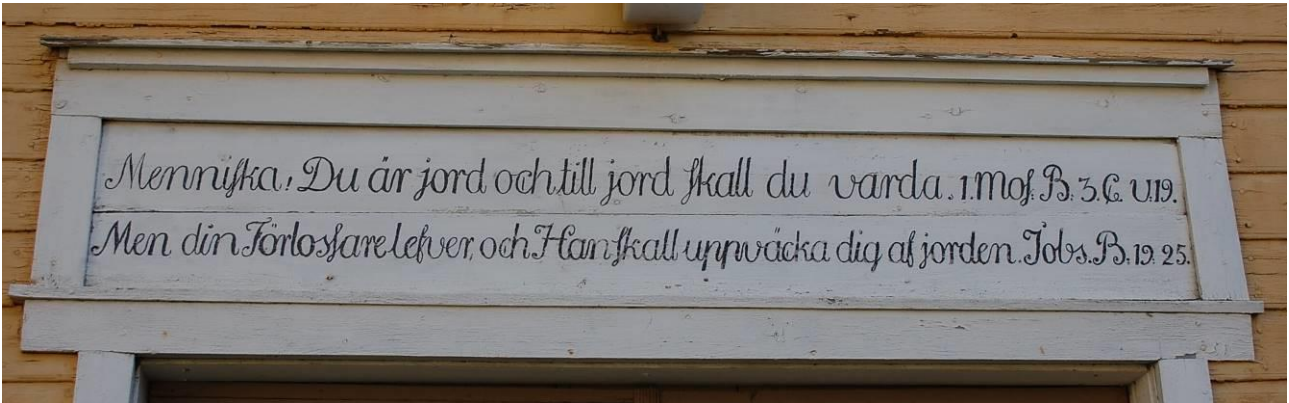 Menniſka, Du är jord och till jord ſkall du varda. 1. Moſ. B. 3. C. V.19.
Men din Förlosſare lefver, och Han ſkall uppväcka dig af jorden. Jobs. B. 19. 25.